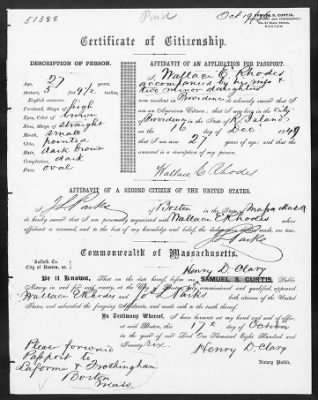 51388
Paid
Oct 19
SAMUEL S. CURTIS,
BOSTON.
Certificate of Citizenship.
DESCRIPTION OF PERSON.
Age, 27
Stature, 5 9 1/2
English measure.
Forehead, Shape of high
Eyes, Color of brown
Nose, Shape of straight
Mouth, small
Chin, pointed
Hair, dark brown
Complexion, dark
Face, oval
AFFIDAVIT OF AN APPLICATION FOR PASSPORT.
I, Wallace E. Rhodes
accompanied by his wife &
two minor daughters
now resident in Providence do solemnly swear that I
am an American Citizen; that I was born in the City
of Providence in the State of R. Island
on the 16 day of Dec 1849
that I am now 27 years of age; and that I
am the person described in the annexed
Wallace E. Rhodes
AFFIDAVIT OF A SECOND CITIZEN OF THE UNITED STATES.
I, of Boston in the State of
do hereby award that I am personally acquainted with Wallace E Rhodes whose
affidavit is annexed, and to the best of my knowledge and belief the are true.
Commonwealth of Massachusetts.
Suffolk Co.
City of Boston, ss.
Henry D. Clary
Be it Known, That on the date hereof before me SAMUEL S. CURTIS, Public
Notary, in and for said county, at the City of duly commissioned and qualified, appeared
Wallace E Rhodes and both citizens of the United
States, and subscribed the foregoing Affidavits, and made oath to the truth thereof.
In Testimony Whereof, I have hereunto set my hand and seal of office,
at said Boston, this 17th day of October
in the year of our Lord One Thousand Eight Hundred and
Seventy-six
Henry D. Clary
Notary Public.
Please forward
Passport to
Laforme & Frothingham
Boston
Mass